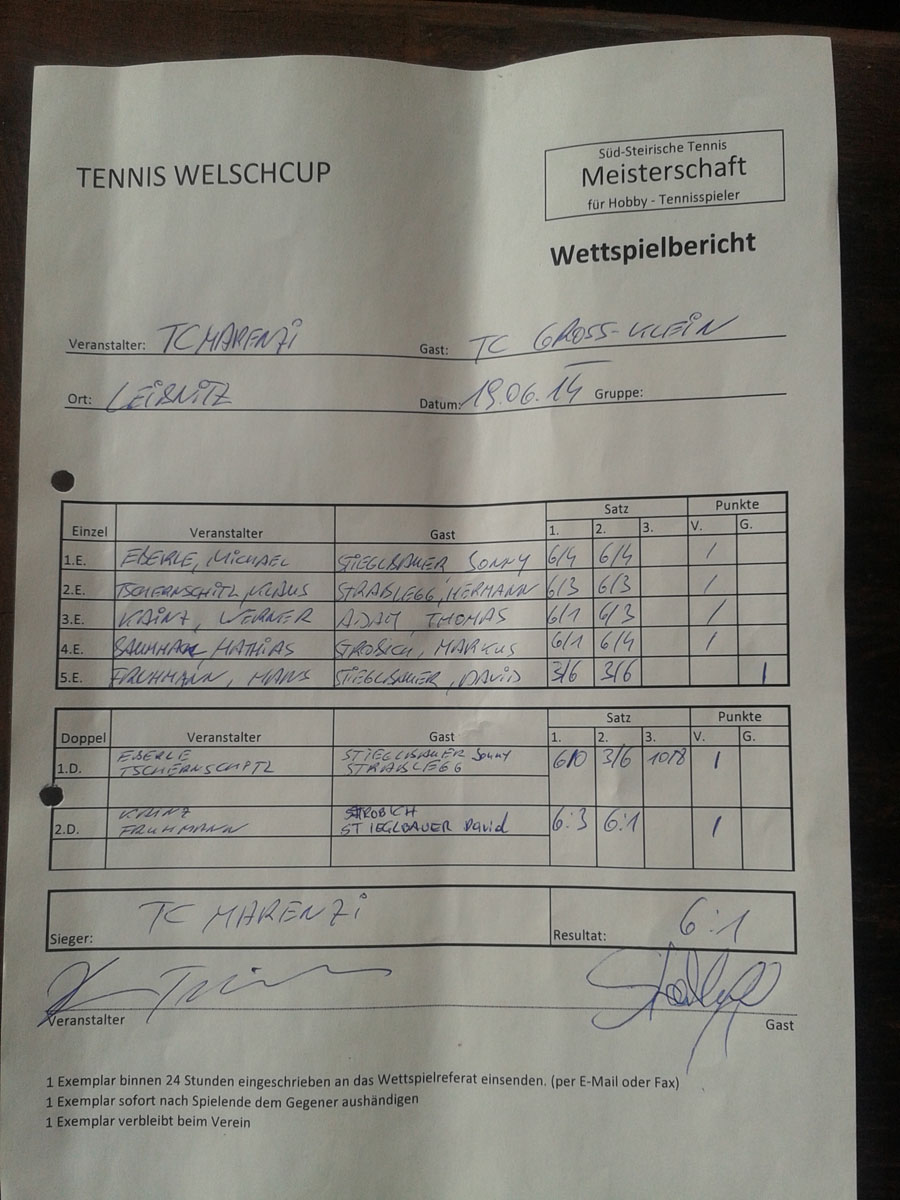 TENNIS WELSCHCUP
Süd-Steirische Tennis
Meisterschaft
für Hobby - Tennisspieler
Wettspielbericht
Veranstalter: TC MARENZI Gast: TC GROSS-KLEIN
Ort: LEIBNITZ Datum: 19.06.14 Gruppe:
Einzel Veranstalter Gast Satz Punkte
1. 2. 3. V. G.
1.E. EBERLE, MICHAEL STIEGLBAUER SONNY 6/4 6/4 /
2.E. TSCHERNSCHITZ, KLAUS STRABLEGG, HERMANN 6/3 6/3 /
3.E. KAINZ, WERNER ADAM, THOMAS 6/1 6/3 /
4.E. MATHIAS GROBICH, MARKUS 6/1 6/4 1
5.E. FRUHMANN, HANS STIEGLBAUER, DAVID 3/6 3/6 1
Doppel Veranstalter Gast Satz Punkte
1. 2. 3. V. G.
1.D. EBERLE STIEGLBAUER Sonny 6/0 3/6 10/8 1
STRABLEGG
KAINZ
2.D. FRUHMANN STIEGLBAUER David 6:3 6:1 1
Sieger: TC MARENZI Resultat: 6:1
Veranstalter Gast
1 Exemplar binnen 24 Stunden eingeschrieben an das Wettspielreferat einsenden. (per E-Mail oder Fax)
1 Exemplar sofort nach Spielende dem Gegener aushändigen
1 Exemplar verbleibt beim Verein